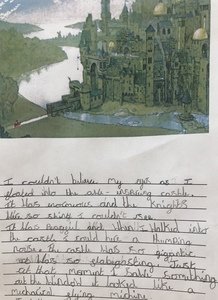 I couldn't believe my eyes as I
glared into the awe-inspiring castle.
It was enormous and the knights
were so shiny I couldn't see.
It was beautiful and when I walked into
the castle I could hear a thumping
noise. The castle was so gigantic
and was so flabergasting. Just
at that moment I saw something
out the window it looked like a
mechanical flying machine